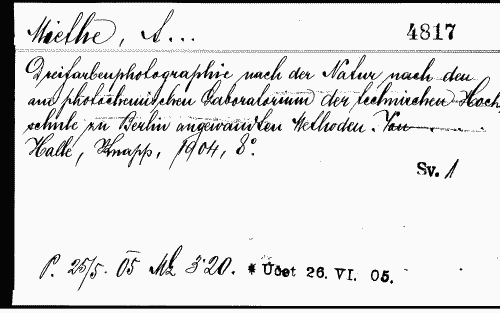 Miethe, A... 4817
Dreifarbenphotographie nach der Natur nach den
am photochemischen Laboratorium der technischen Hoch-
schule zu Berlin angewandten Methoden. Von
Halle, Knapp, 1904, 8°.
Sv. 1
P. 25/5. 05 Mk 3·20. * Účet 26. VI. 05.